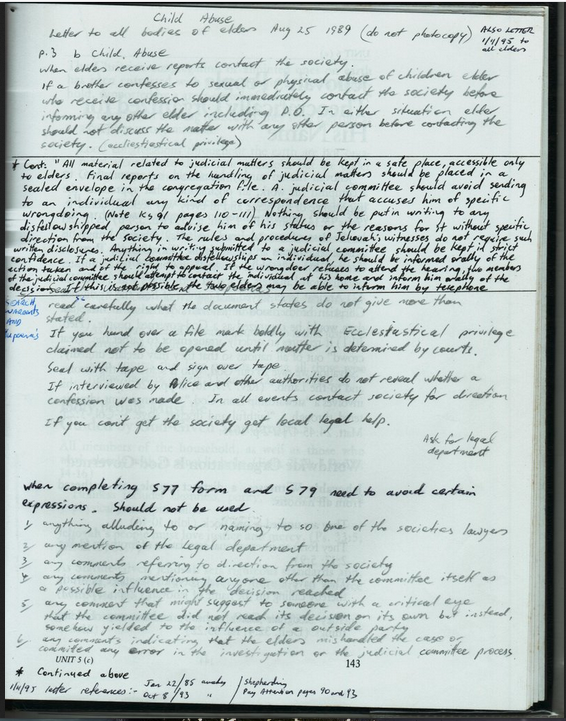 Child Abuse
Letter to all bodies of elders Aug 25 1989 (do not photocopy)
ALSO LETTER
1/11/95 to
all elders
p.3 b Child Abuse
when elders receive reports contact the society.
if a brother confesses to sexual or physical abuse of children elder
who receive confession should immediately contact the society before
informing any other elder including P.O. In either situation elder
should not discuss the matter with any other person before contacting the
society. (ecclesiastical privilege)
* Cont: "All material related to judicial matters should be kept in a safe place, accessible only
to elders. Final reports on the handling of judicial matters should be placed in a
sealed envelope in the congregation file. A judicial committee should avoid sending
to an individual any kind of correspondence that accuses him of specific
wrongdoing. (Note ks91 pages 110-111) Nothing should be put in writing to any
disfellowshipped person to advise him of his status or the reasons for it without specific
direction from the society. The rules and procedures of Jehovah's witnesses do not require such
written disclosures. Anything in writing submitted to a judicial committee should be kept in strict
confidence. If a judicial committee disfellowships an individual, he should be informed orally of the
action taken and of the right to appeal. If the wrongdoer refuses to attend the hearing, the members
of the judicial committee should attempt to contact the individual at his home and inform him orally of the
decision. If this is not possible, the two elders may be able to inform him by telephone
SEARCH
WARRANTS
AND
subpoena's
read carefully what the document states do not give more than
stated.
If you hand over a file mark boldly with Ecclestastical privilege
claimed not to be opened until matter is determied by courts.
Seal with tape and sign over tape
If interviewed by Police and other authorities do not reveal whether a
confession was made. In all events contact society for direction
If you can't get the society get local legal help.
Ask for legal
department
when completing S77 form and S79 need to avoid certain
expressions. Should not be used.
1/ anything alluding to or naming to so one of the societies lawyers
2/ any mention of the Legal department
3/ any comments referring to direction from the society
4/ any comments mentioning anyone other than the committee itself as
a possible influence in the decision reached
5/ any comment that might suggest to someone with a critical eye
that the committee did not reach its decision on its own but instead,
somehow yielded to the influence of a outside party
6/ any comments indicating that the elders mishandled the case or
commited any error in the investigation or the judicial committee process
UNIT 5 (c)
143
* Continued above
1/11/95 letter references:- Jan 22/85 awake / Shepherding
Oct 8 /93 " / Pay Attention pages 90 and 93